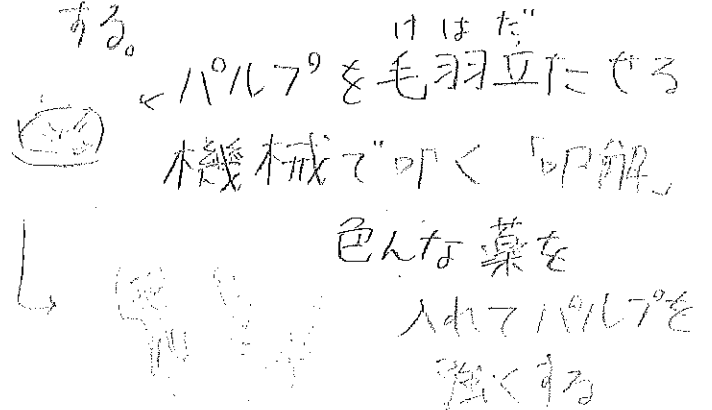 する。
けはだ
←パルプを毛羽立たせる
機械で叩く「叩解」
色んな薬を
入れてパルプを
強くする